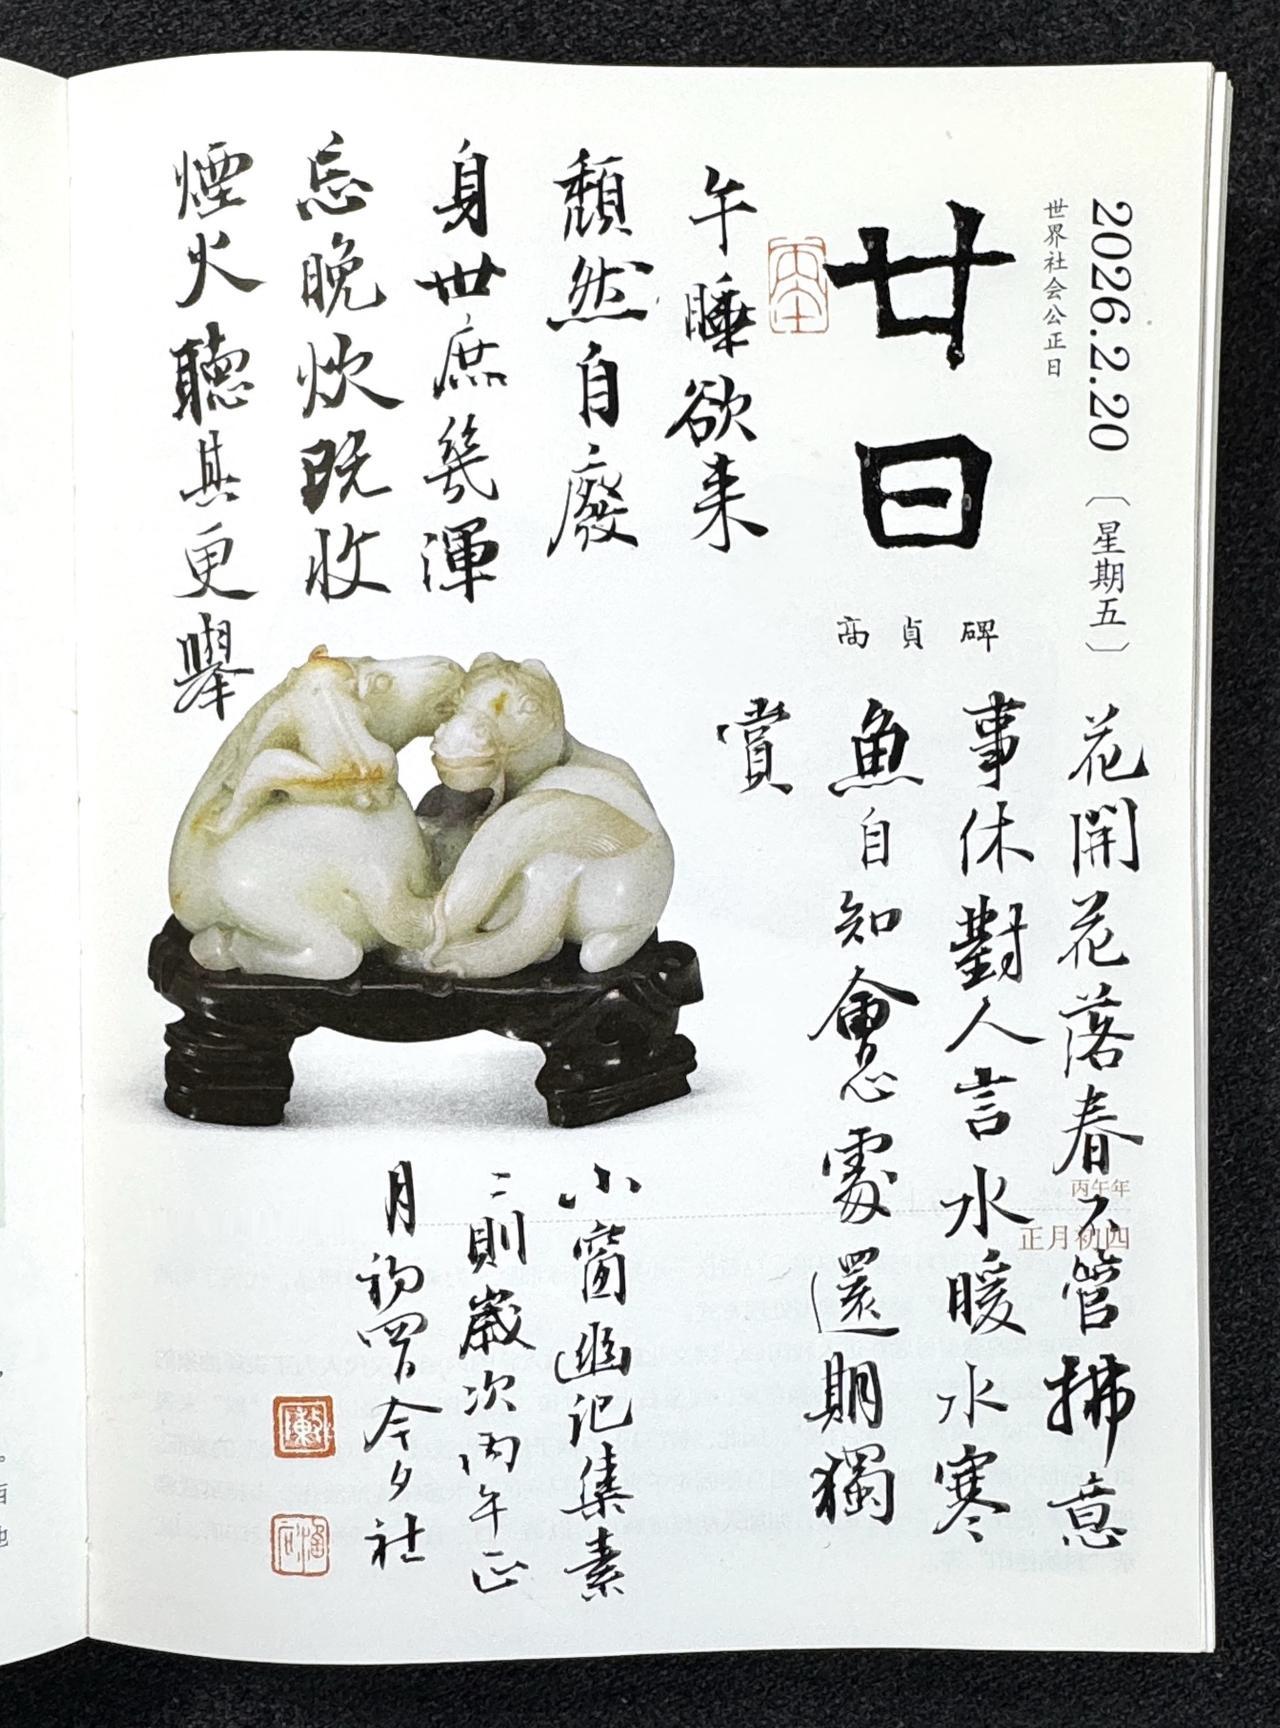 2026.2.20〔星期五〕
世界社会公正日
廿日
高貞碑
花開花落春不管拂意
事休對人言水暖水寒
魚自知會心處還期獨
賞
午睡欲来
頹然自廢
身世庶幾渾
忘晚炊既收
煙火聽其更舉
丙午年
正月初四
小窗幽記集素
二則歲次丙午正
月初四日今夕社